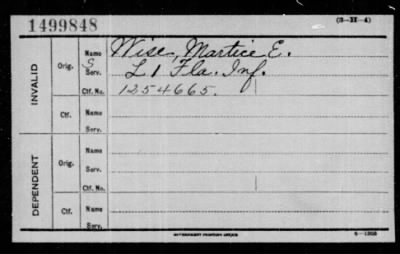 1499848 (3-H-4)
INVALID
Orig. Name Wise, Martice E.
S Serv. L 1 Fla. Inf.
Ctf. No. 1254665.
Ctf. Name
Serv.
DEPENDENT
Orig. Name
Serv.
Ctf. No.
Ctf. Name
Serv.
GOVERNMENT PRINTING OFFICE